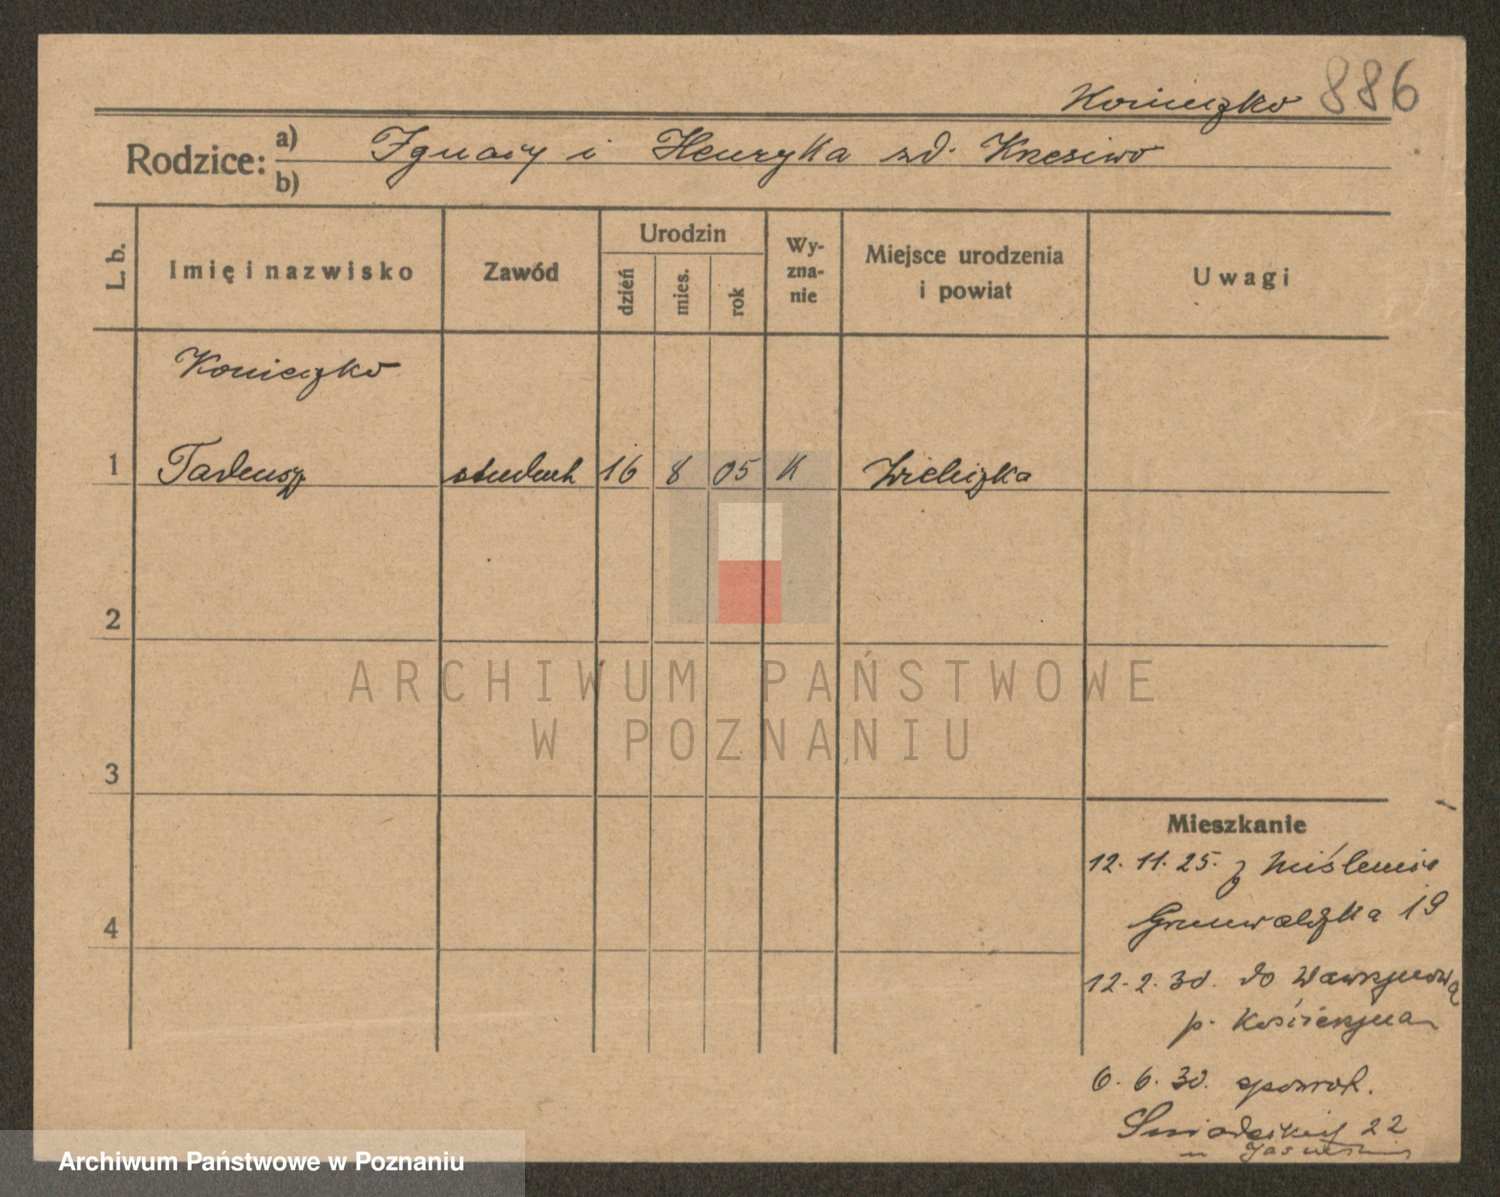 Konieczko 886
Rodzice: a) Ignacy i Henryka zd.
b)
L. b.
Imię i nazwisko
Zawód
Urodzin
dzień
mies.
rok
Wy-
zna-
nie
Miejsce urodzenia
i powiat
Uwagi
Konieczko
1 Tadeusz student 16 8 05 K Wieliczka
2
ARCHIWUM PAŃSTWOWE
W POZNANIU
3
Mieszkanie
12.11.25. z
4
Grunwaldzka 19
12.2.30. do
p. Kościerzyna
6.6.30. spowrot.
Śniadeckich 22
u
Archiwum Państwowe w Poznaniu